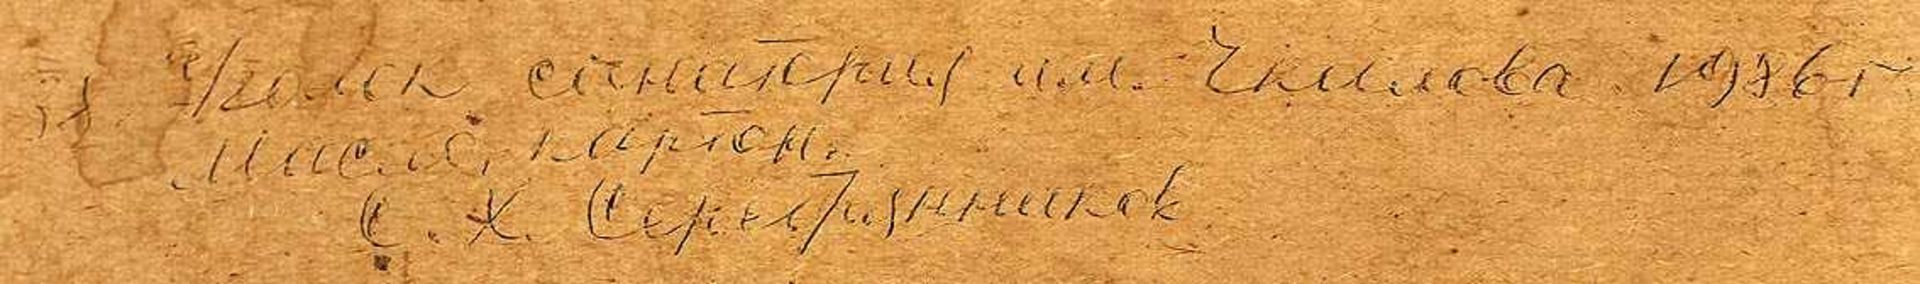 Уголок санатория им. Чкалова 1986 г
масло, картон.
С. Х. Серебрянников